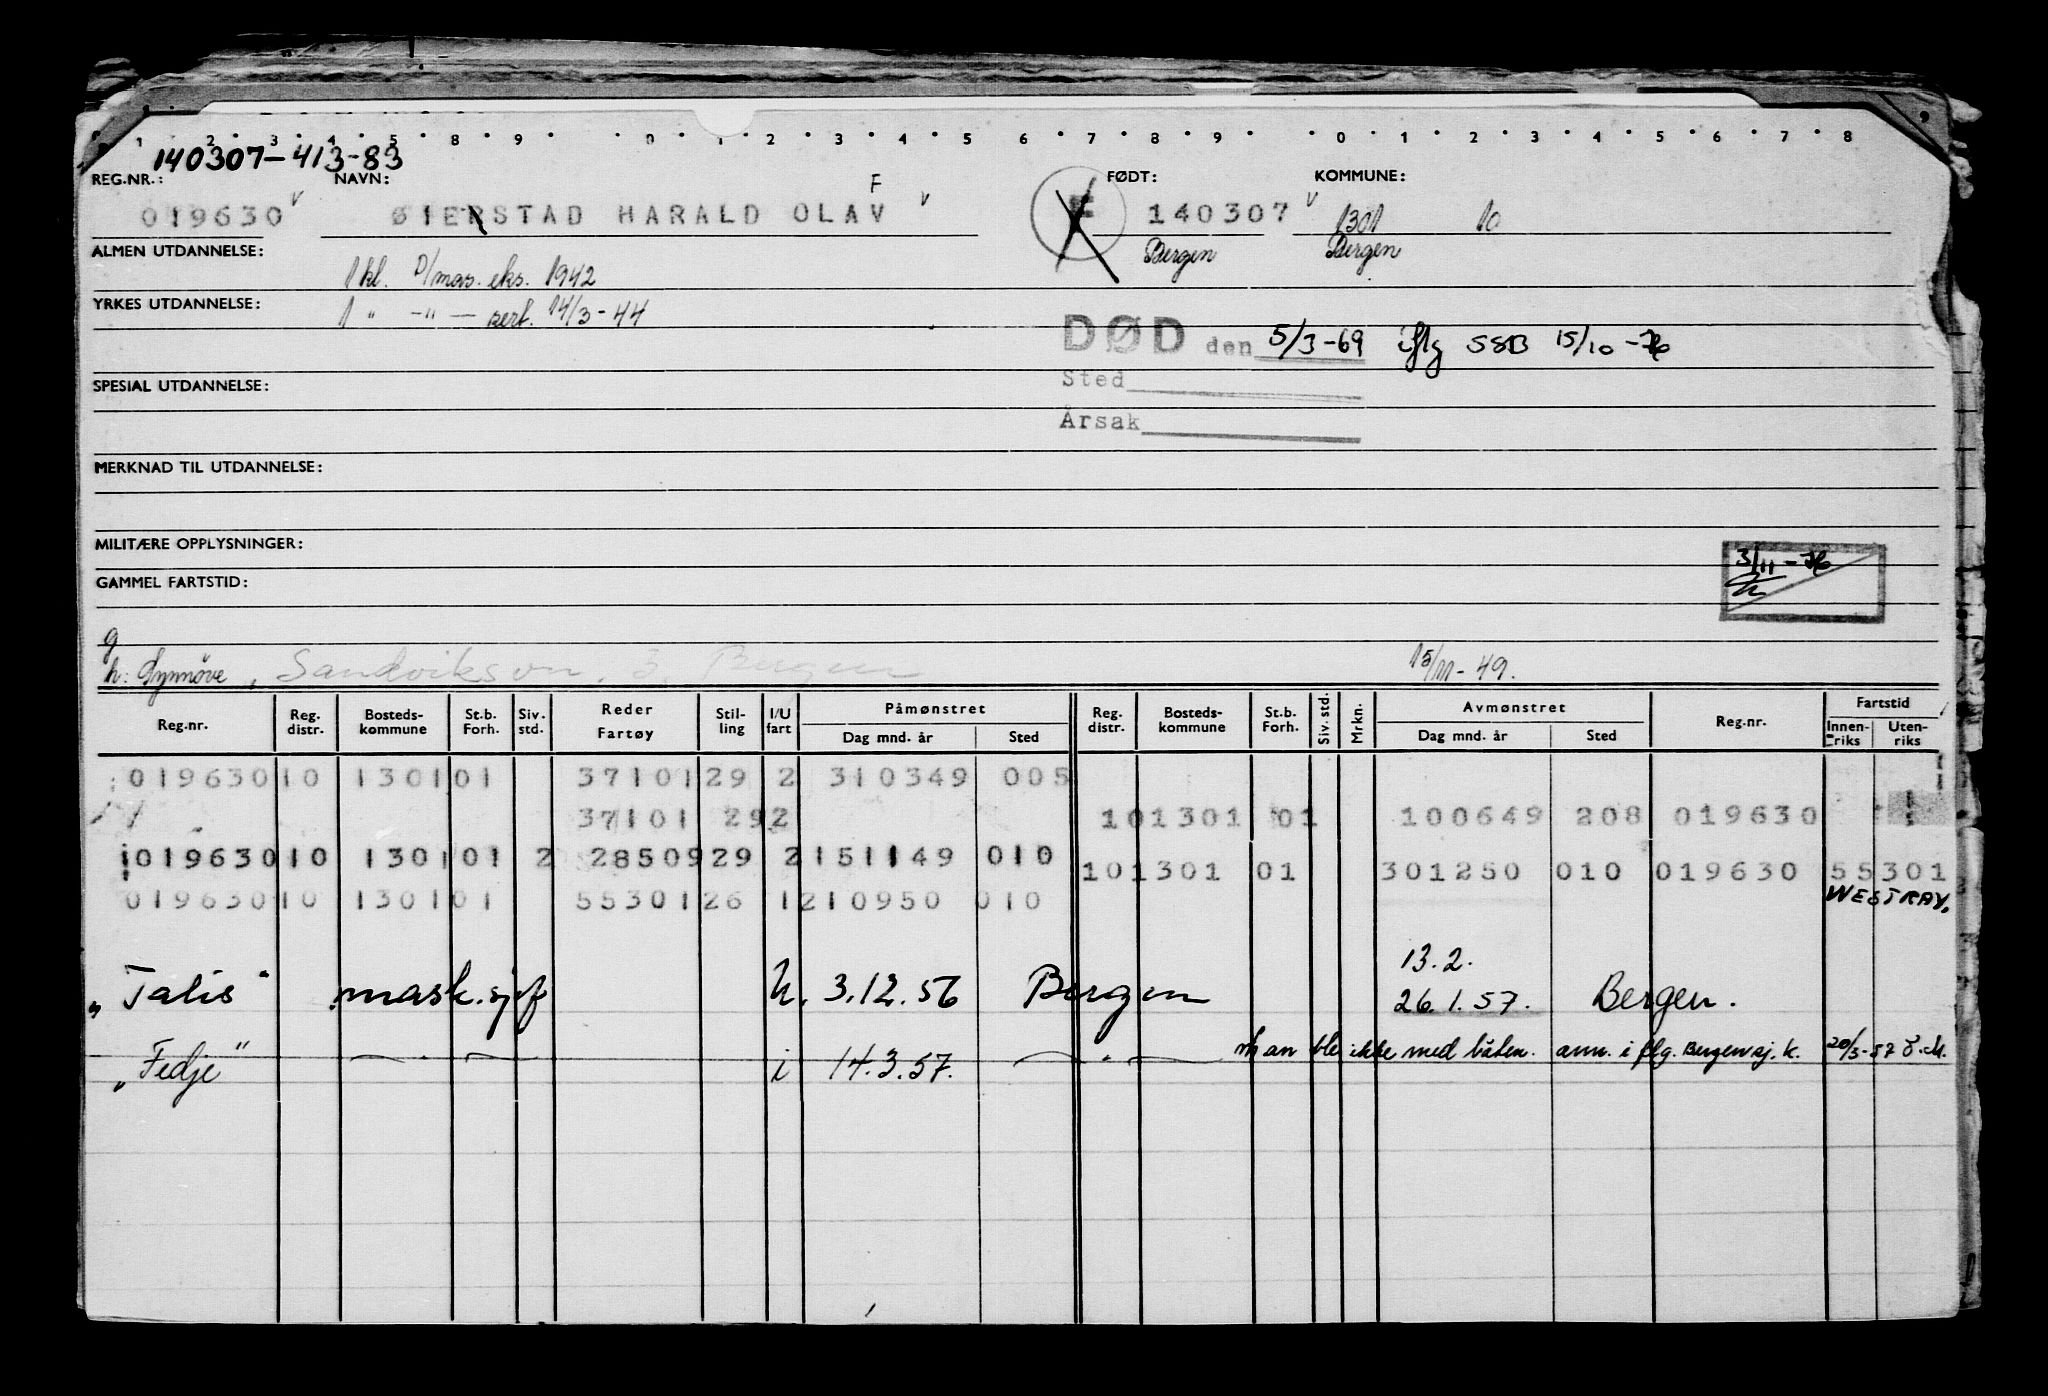 1 2 3 4 5 8 9 0 1 2 3 4 5 6 7 8 9 0 1 2 3 4 5 6 7 8 9
140307-413-83
REG.NR.: NAVN: FØDT: KOMMUNE:
F
019630 ØIERSTAD HARALD OLAV E 140307 1301 10
Bergen Bergen
ALMEN UTDANNELSE:
1 kl. D/mas. eks. 1942
YRKES UTDANNELSE:
1 " -"- sert. 14/3-44
DØD den 5/3-69 iflg SSB 15/10-76
Sted
SPESIAL UTDANNELSE:
Årsak
MERKNAD TIL UTDANNELSE:
MILITÆRE OPPLYSNINGER:
3/11-76
GAMMEL FARTSTID:
g
h: Synnöve, Sandviksvn. Bergen 15/11-49.
Reg.nr. Reg. distr. Bosteds-kommune St.b. Forh. Siv. std. Reder Fartøy Stil-ling I/U fart Påmønstret Dag mnd. år Sted Reg. distr. Bosteds-kommune St.b. Forh. Siv. std. Mrkn. Avmønstret Dag mnd. år Sted Reg.nr. Fartstid Innen-riks Uten-riks
019630 10 1301 01 37101 29 2 310349 005
37101 29 2 10 1301 01 100649 208 019630
019630 10 1301 01 2 28509 29 2 151149 010
10 1301 01 301250 010 019630 55301
019630 10 1301 01 55301 26 1 210950 010 WESTRAY.
13.2.
"Talis" mask.sjef U. 3.12.56 Bergen 26.1.57. Bergen.
"Fedje" — " — i 14.3.57. — " — Man ble ikke med båten. ann. i flg. Bergen sj. k. 20/3-57 Ö.M.